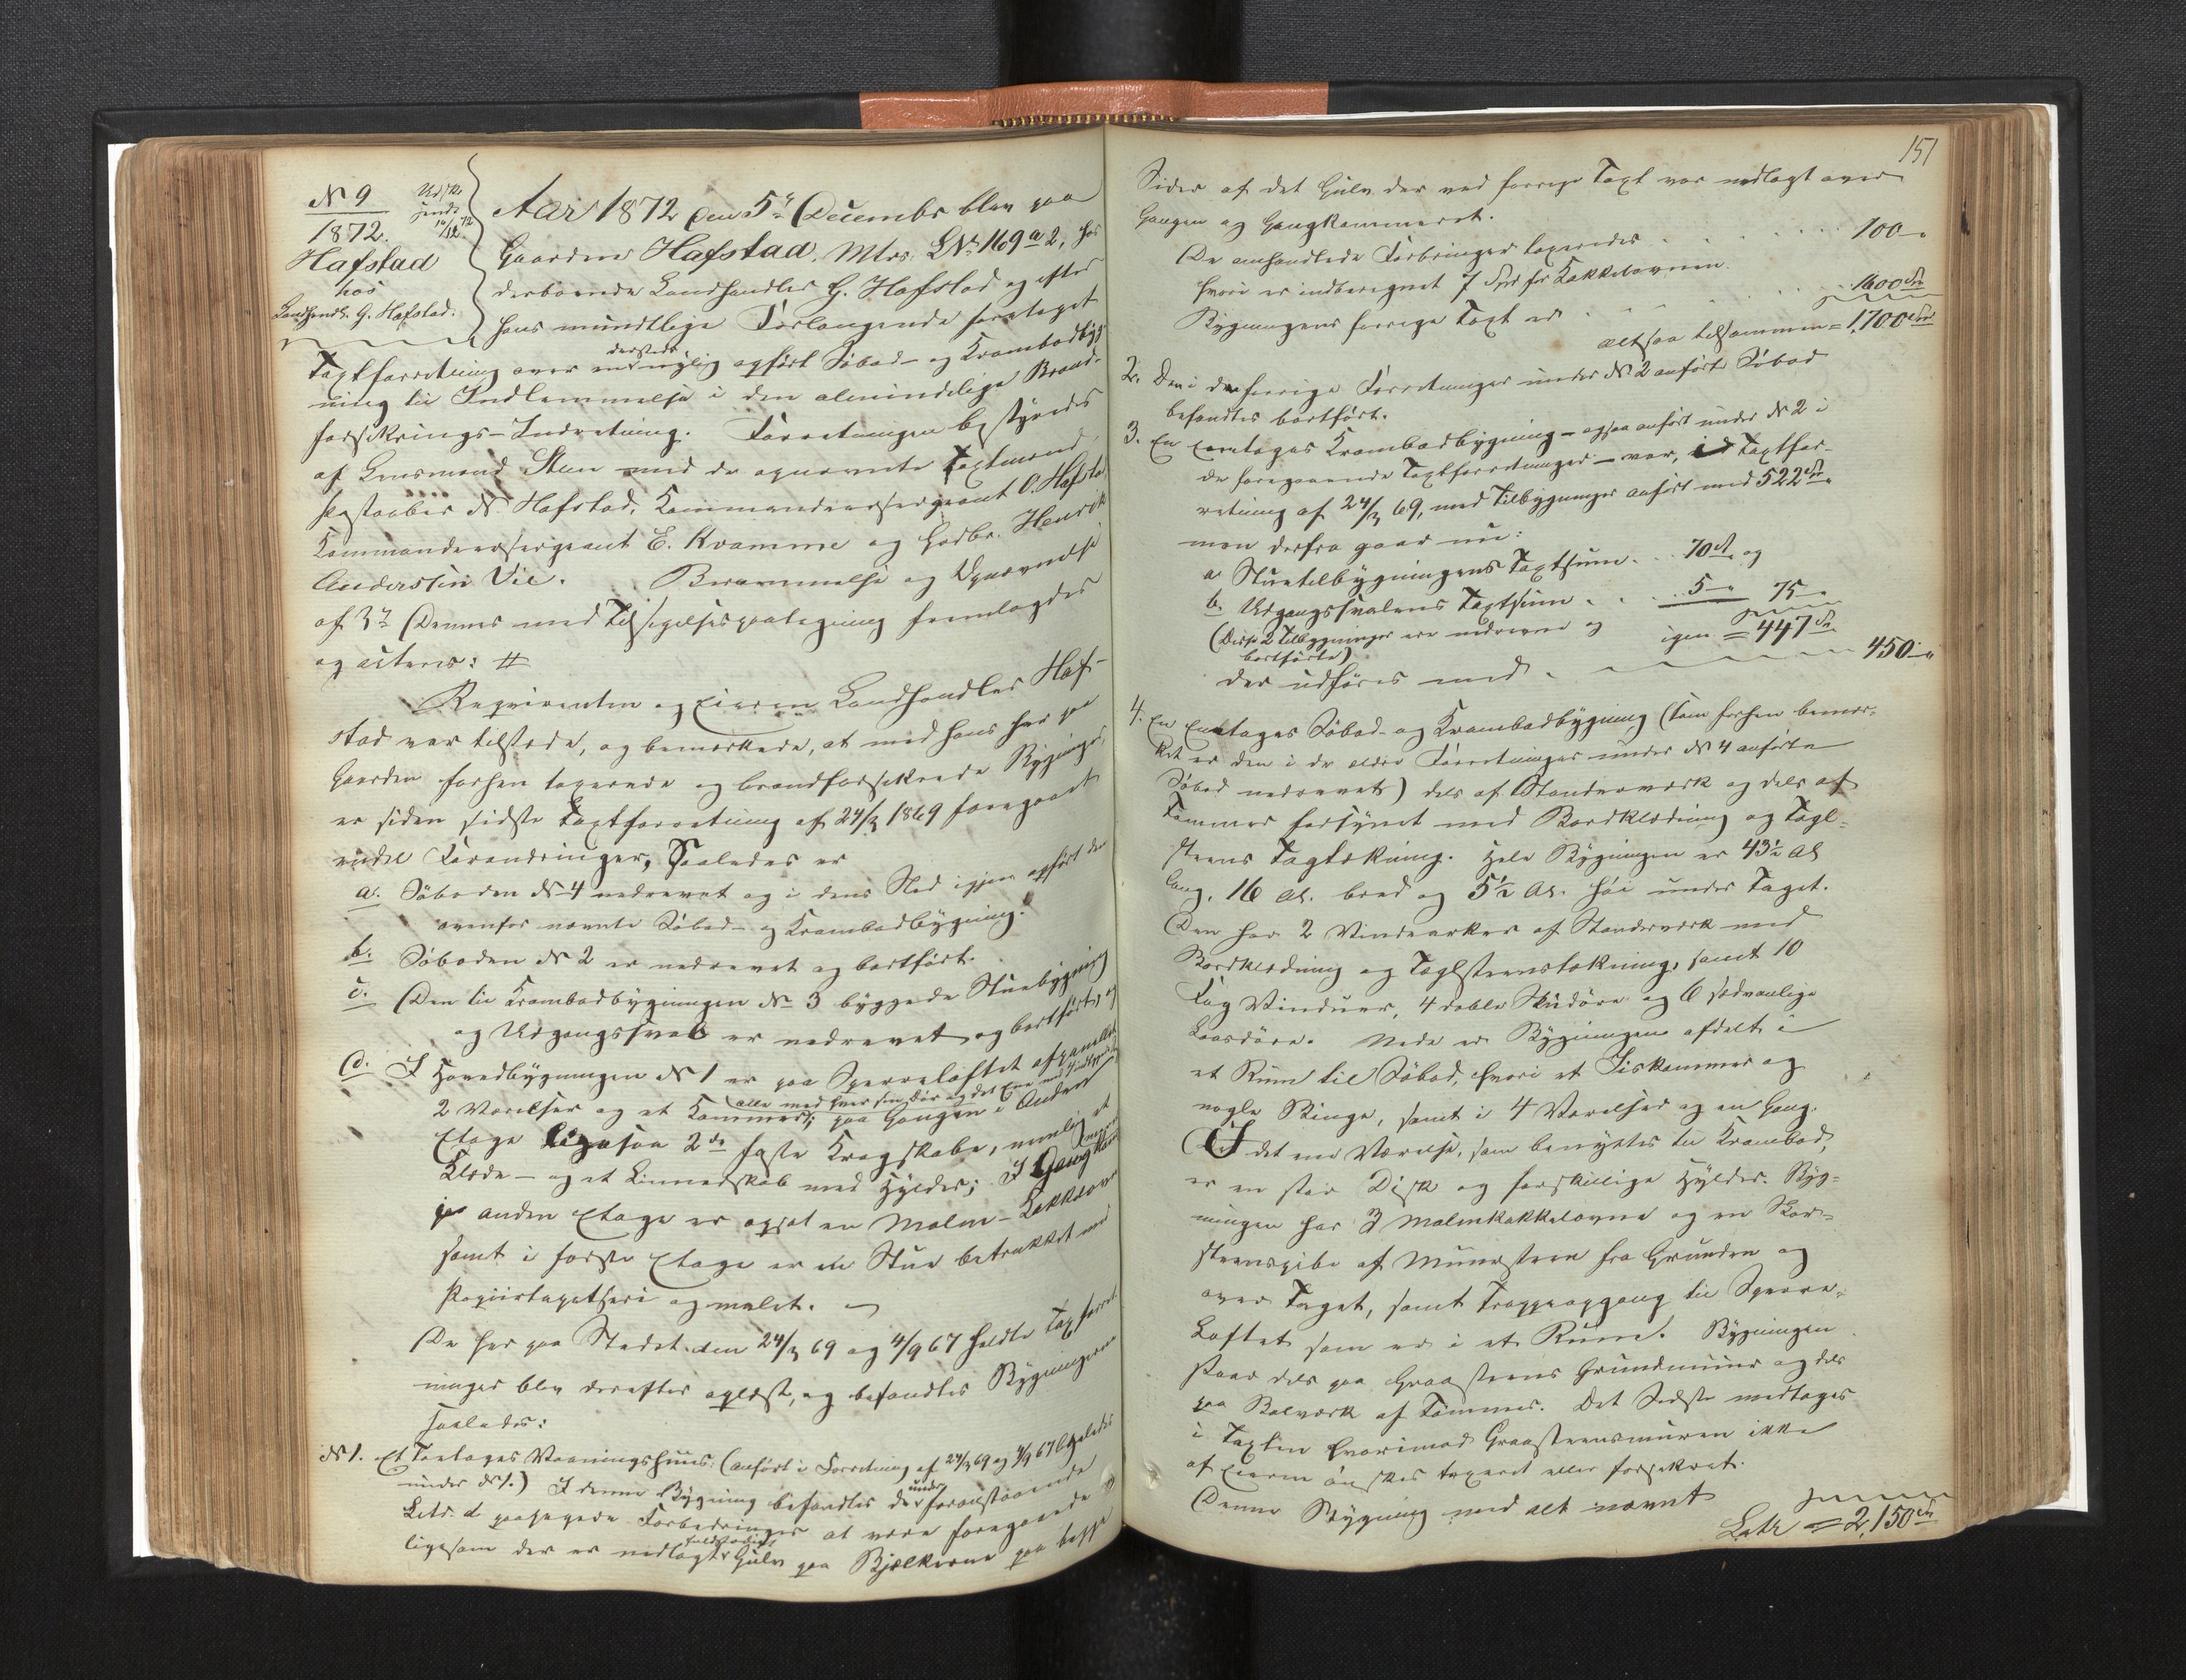 N 9
1872.
Hafstad
hos
Landhandl. G. Hafstad.
Udskr.
sendt
14/12 72
Aar 1872 den 5te Decembr blev paa
Gaarden Hafstad, Mtr. LNr. 169 a 2, hos
derboende Landhandler G. Hafstad og efter
hans mundtlige Forlangende foretaget
Taxtforretning over en dersteds nylig opført Søbod- og Krambodbyg-
ning til Indlemmelse i den almindelige Brand-
forsikrings-Indretning. Forretningen bestyredes
af Lensmand Steen med de opnævnte Taxtmænd,
N. Hafstad, Kommandeersergeant O. Hafstad
Kommandeersergeant E. Kvamme og Gbr. Henrik
Anderssen Vie. Berammelse og Opnævnelse
af 3de Dennes med Tilsigelsespaategning fremlagdes
og acteres: #
Reqvirenten og Eieren Landhandler Haf-
stad var tilstede, og bemærkede, at med hans her paa
Gaarden forhen taxerede og brandforsikrede Bygninger,
er siden sidste Taxtforretning af 24/3 1869 foregaaet
endel Forandringer, Saaledes er
a. Søboden N 4 nedrevet og i dens Sted igjen opført den
ovenfor nævnte Søbod- og Krambodbygning.
b. Søboden N 2 er nedrevet og bortført.
c. Den til Krambodbygningen N 3 byggede Stuebygning
og Udgangssval er nedrevet og bortført, og
d. I Hovedbygningen N 1 er paa Sperreloftet afpanellet
2 Værelser og et Kammers, alle med hver sin Dør og det Ene med; paa Gangen i Anden
Etage ligesaa 2de faste Kragskabe, nemlig et
Klæde- og et Linnedskab med Hylder; I Gangkam
i anden Etage er opsat en Malm-Kakkelovn
samt i første Etage er en Stue betrukket med
Papiirtapetseri og malet.
De her paa Stedet den 24/3 69 og 4/9 67 holdte Taxforret-
ninger blev derefter oplæst, og befandtes Bygningerne
saaledes:
N 1. Et Toetages Vaaningshuus: (anført i Forretning af 24/3 69 og 4/9 67 ligeledes
under N 1.) I denne Bygning befandtes de under foranstaaende
Litr. d paasagede Forbedringer at være foregaaede
ligesom der er nedlagt fuldstændigt Gulv paa Bjælkerne paa begge
151
Sider af det Gulv der ved forrige Taxt var nedlagt over
Gangen og Gangkammeret.
De omhandlede Forbedringer taxeredes . . . 100 "
hvori er indberegnet 7 Spd for Kakkelovnen.
Bygningens forrige Taxt er . . . 1600 Spd
altsaa tilsammen = 1,700 Spd
2. Den i de forrige Forretninger under N 2 anførte Søbod
befandtes bortført.
3. En Eenetages Krambodbygning - ogsaa anført under N 2 i
de foregaaende Taxtforretninger - var, i Taxtfor-
retning af 24/3 69, med Tilbygninger anført med 522 Spd.
men derfra gaar nu:
a Stuetilbygningens Taxtsum . . 70 Spd. og
b. Udgangssvalens Taxtsum . . . 5 " 75 "
(Disse 2 Tilbygninger ere nedrevne og
bortførte) igjen = 447 Spd
der udføres med . 450 "
4. En Eenetages Søbod- og Krambodbygning (som forhen bemær-
ket er den i de ældre Forretninger under N 4 anførte
Søbod nedrevet) dels af Standerværk og dels af
Tømmer forsynet med Bordklædning og Tagl-
steens Tagtækning. Hele Bygningen er 43 1/2 Al
lang, 16 Al. bred og 5 1/2 Al. høi under Taget.
Den har 2 Vindearker af Standerværk med
Bordklædning og Taglsteenstækning, samt 10
Fag Vinduer, 4 doble Skuddøre og 6 sædvanlige
Laasdøre. Nede er Bygningen afdelt i
et Rum til Søbod, hvori et Fiskammer og
nogle Binge, samt i 4 Værelser og en Gang.
I det ene Værelse, som benyttes til Krambod,
er en stor Disk og forskjellige Hylder. Byg-
ningen har 3 Malmkakkelovne og en Skor-
steenspibe af Muursteen fra Grunden og
over Taget, samt Trappeopgang til Sperre-
Loftet som er i et Rum. Bygningen
staar dels paa Graasteens Grundmuur og dels
paa Bolværk af Tømmer. Det Sidste medtages
i Taxten hvorimod Graasteensmuren ikke
af Eieren ønskes taxeret eller forsikret.
Denne Bygning med alt nævnt
Lateris = 2,150 Spd